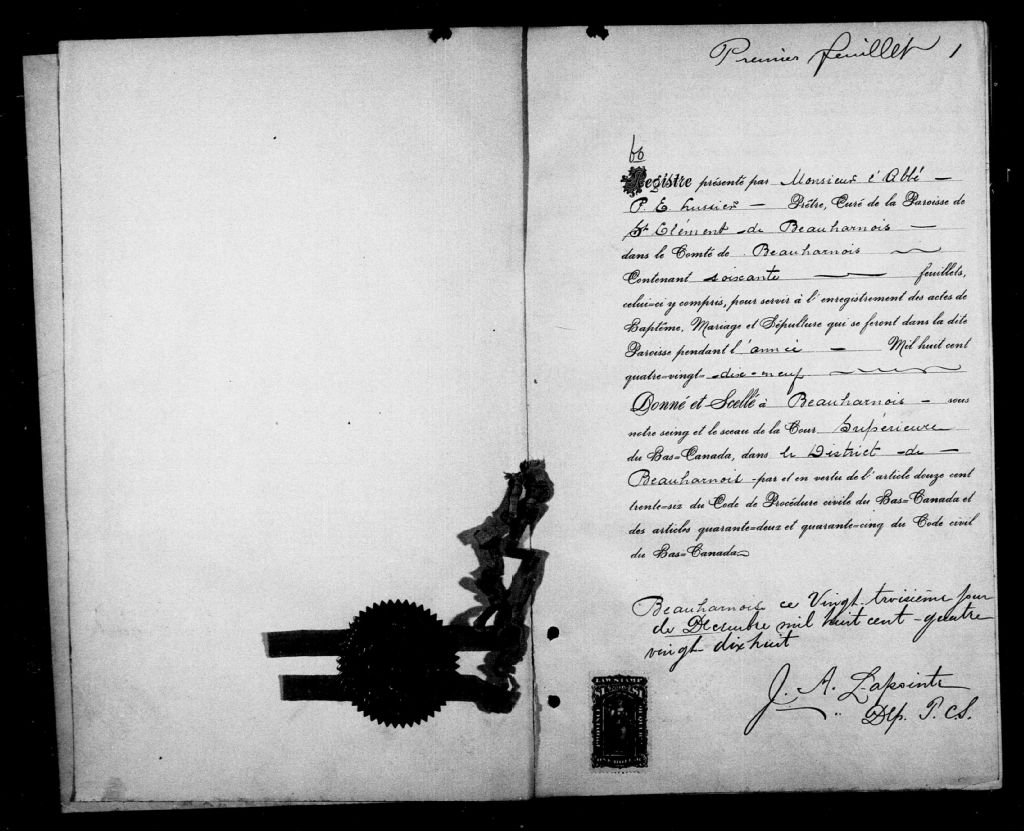 Premier feuillet 1
60
Registre présenté par Monsieur l'Abbé —
P. E Lussier — Prêtre, Curé de la Paroisse de
St Clément de Beauharnois —
dans le Comté de Beauharnois
Contenant soixante — feuillets,
celui=ci y compris, pour servir à l'enregistrement des actes de
Baptême, Mariage et Sépulture qui se feront dans la dite
Paroisse pendant l'année — Mil huit cent
quatre=vingt= dix-neuf
Donné et Scellé à Beauharnois — sous
notre seing et le sceau de la Cour Supérieure
du Bas=Canada, dans le District de —
Beauharnois par et en vertu de l'article douze cent
trente=six du Code de Procédure civile du Bas=Canada et
des articles quarante=deux et quarante=cinq du Code civil
du Bas=Canada
Beauharnois ce Vingt-troisième jour
de Décembre mil huit cent-quatre
vingt-dix huit
J. A. Lapointe
Dép. P. C. S.
LAW STAMP
PROVINCE
QUEBEC
ONE DOLLAR